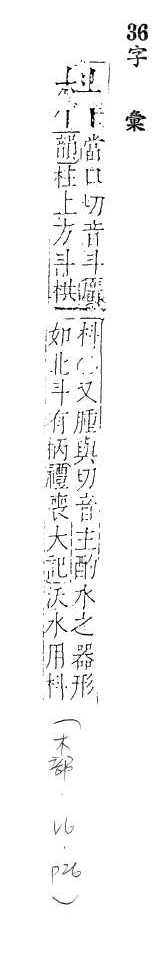 36字彙
當口切音斗欂
韻柱上方蚪栱
枓○又腫與切音主酌水之器形
如北斗有柄禮喪大記沃水用枓
(木部．V6．P26)